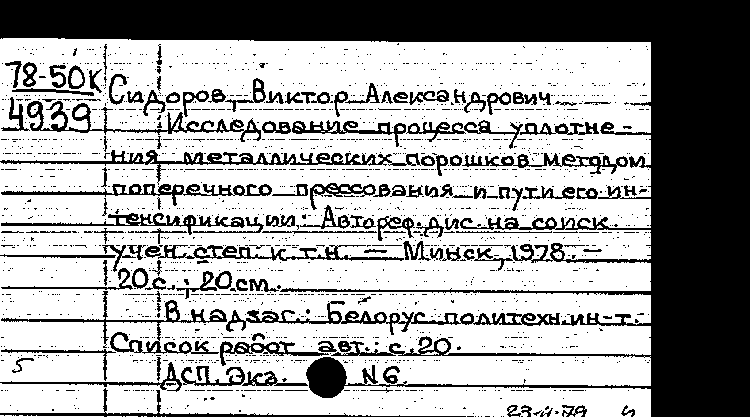 78-50К
4939
Сидоров, Виктор Александрович
Исследование процесса уплотне-
ния металлических порошков методом
поперечного прессования и пути его ин-
тенсификации: Автореф. дис. на соиск.
учен. степ. к.т.н. — Минск, 1978. —
20 с.; 20 см.
В надзаг.: Белорус. политехн. ин-т.
Список работ авт.: с. 20.
5
ДСП. Экз. N 6.